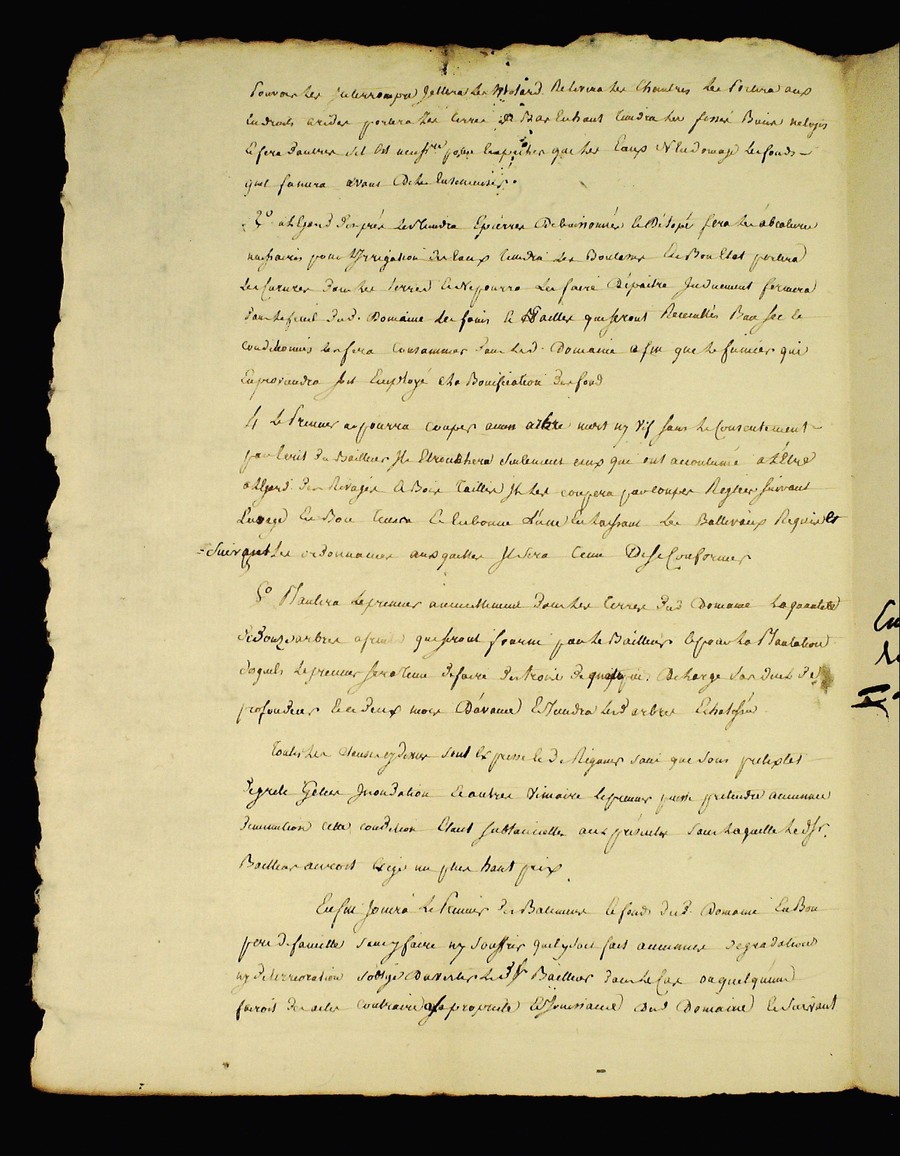 Pouvoir les Interrompre Jettera les Relevera les Chaintres les Portera aux
Endroits arides portera les terres de Bas Enhaut Tiendra les fossés Buin nétoyés
En fera d'autres s'il Est necessre pour Empecher que les Eaux N'Endomage les fonds
quil fumera avant De les Ensemencés.
3o. a l'Egard des prés les tiendra Epierrés Debuissonnés et Détopé fera les
necessaires pour L'Irrigation des Eaux tiendra les Bouleures En Bon Etat portera
les Curures dans les terres et Ne pourra les faire Dépaitre Induement fermera
dans le fenil dud. Domaine les foins et pailles qui seront Recueillis Bien sec et
conditionnés les fera Consommer dans led. Domaine afin que le fumier qui
en proviendra soit Employé a la Bonification des fond
4 Le Fermier ne pourra couper aucun arbre mort ny Vif sans le Consentement
par Ecrit du Bailleur Il Etronchera seulement ceux qui ont accoutumé a L'Etre
a l'Egard des Rivages et Bois Taillis Il les coupera par coupes Reglées suivant
L'usage En Bon Tems et En bonne Lune En laissant les Balliveaux Requis Et
Suivant les ordonnances auxquelles Il sera tenu De se Conformer
5o Plantera le fermier annuellement dans les Terres dud Domaine La quantité
de douze arbres qui seront fourni par le Bailleur et pour la Plantation
desquels le fermier sera tenu de faire des trous de quatre pié De large sur deux de
profondeur et ce deux mois D'avance Et tiendra lesd arbres Echalassés
Toutes les clauses cy dessus sont Expresse et de Rigueur sans que sous pretextes
de grele Gelées Inondation et autres Vimaire le fermier puisse pretendre aucunne
diminution cette condition Etant substancielle aux présentes sans laquelle led. Sr.
Bailleur auroit Exigé un plus haut prix.
Enfin Jouira Le Fermier des Batimens et fonds dud. Domaine En Bon
pere de famille sans y faire ny souffrir quil y soit fait aucunnes degradations
ny deterrioration s'oblige D'avertir led Sr Bailleur dans le Cas ou quelqu'un
feroit des actes contraire a la propriété Et Jouissance dud Domaine En suivant